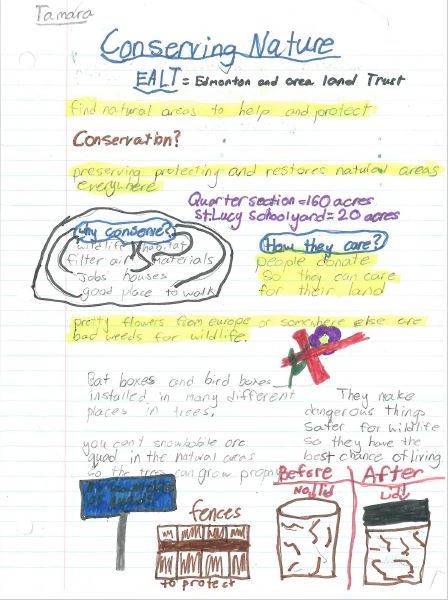 Tamara
Conserving Nature
EALT = Edmonton and area land Trust
find natural areas to help and protect
Conservation?
preserving protecting and restores natural areas
everywhere
Quarter section = 160 acres
St. Lucy schoolyard = 20 acres
Why conserve?
wildlife habitat
filter air materials
Jobs houses
good place to walk
How they care?
people donate
So they can care
for their land
pretty flowers from europe or somewhere else are
bad weeds for wildlife.
Bat boxes and bird boxes
installed in many different
places in trees.
They make
dangerous things
Safer for wildlife
So they have the
best chance of living
you can't snowbobile or
quad in the natural areas
so the trees can grow
Before
No lid
After
Lid
fences
to protect